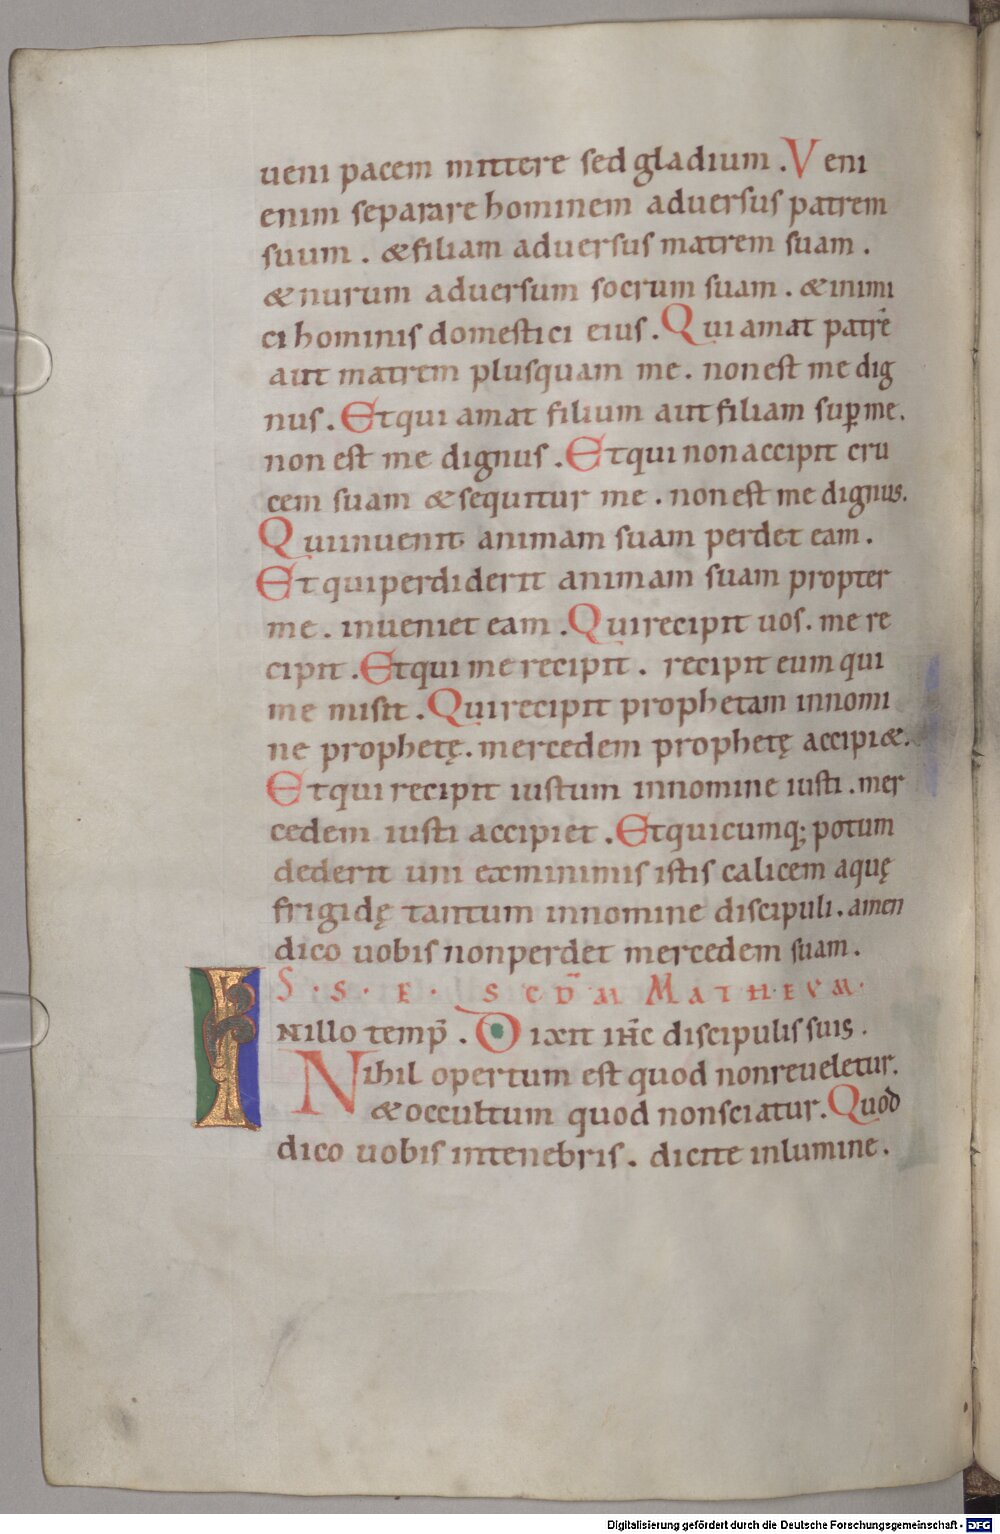 ueni pacem mittere sed gladium. Veni
enim separare hominem aduersus patrem
suum. &filiam aduersus matrem suam.
&nurum aduersum socrum suam. &inimi
ci hominis domestici eius. Qui amat patrē
aut matrem plusquam me. non est me dig
nus. Et qui amat filium aut filiam sup̄ me.
non est me dignus. Et qui non accipit cru
cem suam & sequitur me. non est me dignus.
Qui inuenit animam suam perdet eam.
Et qui perdiderit animam suam propter
me. inueniet eam. Qui recipit uos. me re
cipit. Et qui me recipit. recipit eum qui
me misit. Qui recipit prophetam in nomi
ne prophetę. mercedem prophetę accipi&.
Et qui recipit iustum in nomine iusti. mer
cedem iusti accipiet. Et quicumq; potum
dederit uni ex minimis istis calicem aquę
frigidę tantum in nomine discipuli. amen
dico uobis non perdet mercedem suam.
S. S. E. SCD̄M MATHEVM.
IN illo temp̄. Dixit ih̄c discipulis suis.
Nihil opertum est quod non reueletur.
& occultum quod non sciatur. Quod
dico uobis in tenebris. dicite in lumine.
Digitalisierung gefördert durch die Deutsche Forschungsgemeinschaft - DFG